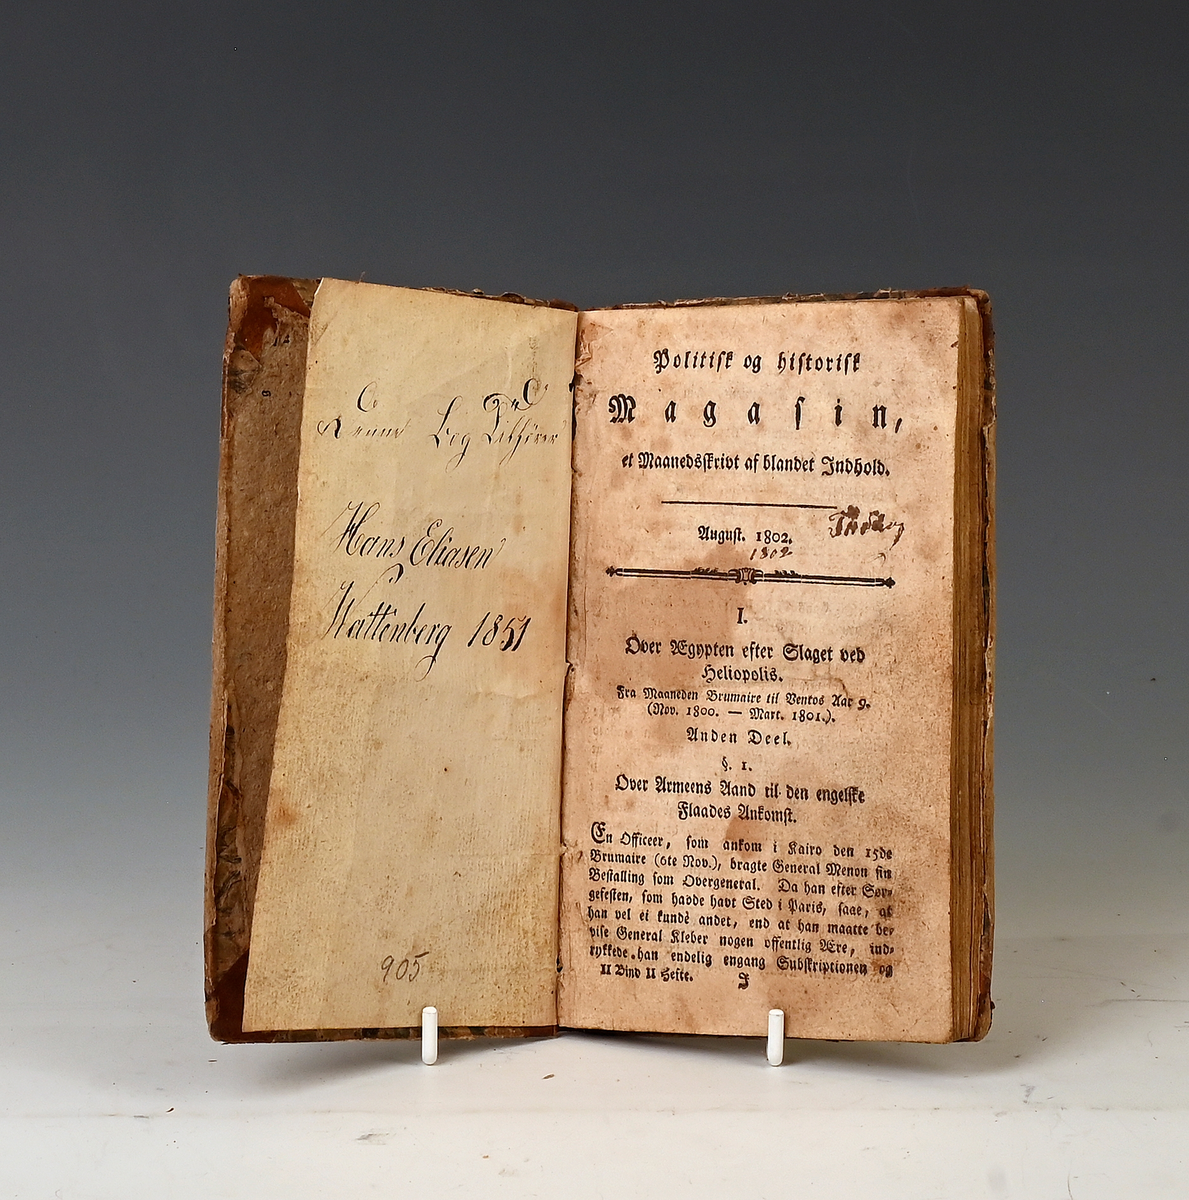 Denne Bog Tilhører
Hans Eliasen
Wattenberg 1851
905
Politisk og historisk
Magasin,
et Maanedsskrivt af blandet Indhold.
August. 1802.
1802
I.
Over Ægypten efter Slaget ved
Heliopolis.
Fra Maaneden Brumaire til Ventos Aar 9.
(Nov. 1800. — Mart. 1801.).
Anden Deel.
§. 1.
Over Armeens Aand til den engelske
Flaades Ankomst.
En Officeer, som ankom i Kairo den 15de
Brumaire (6te Nov.), bragte General Menou sin
Bestalling som Overgeneral. Da han efter Sør-
gefesten, som havde havt Sted i Paris, saae, at
han vel ei kunde andet, end at han maatte be-
vise General Kleber nogen offentlig Ære, ind-
rykkede han endelig engang Subskriptionen og
II Bind II Hefte. I